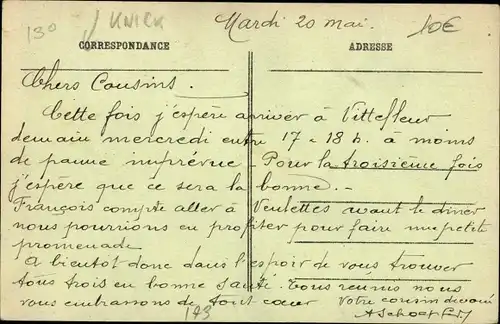 130 KNICK Mardi 20 mai. 10€
CORRESPONDANCE ADRESSE
Chers Cousins.
Cette fois j'espère arriver à Vittefleur
demain mercredi entre 17 = 18 h. à moins
de panne imprévue - Pour la troisième fois
j'espère que ce sera la bonne. -
François compte aller à Veulettes avant le diner
nous pourrions en profiter pour faire une petit
promenade
A bientôt donc dans l'espoir de vous trouver
tous trois en bonne santé. Tous reunis nous
vous embrassons de tout cœur Votre cousin
193